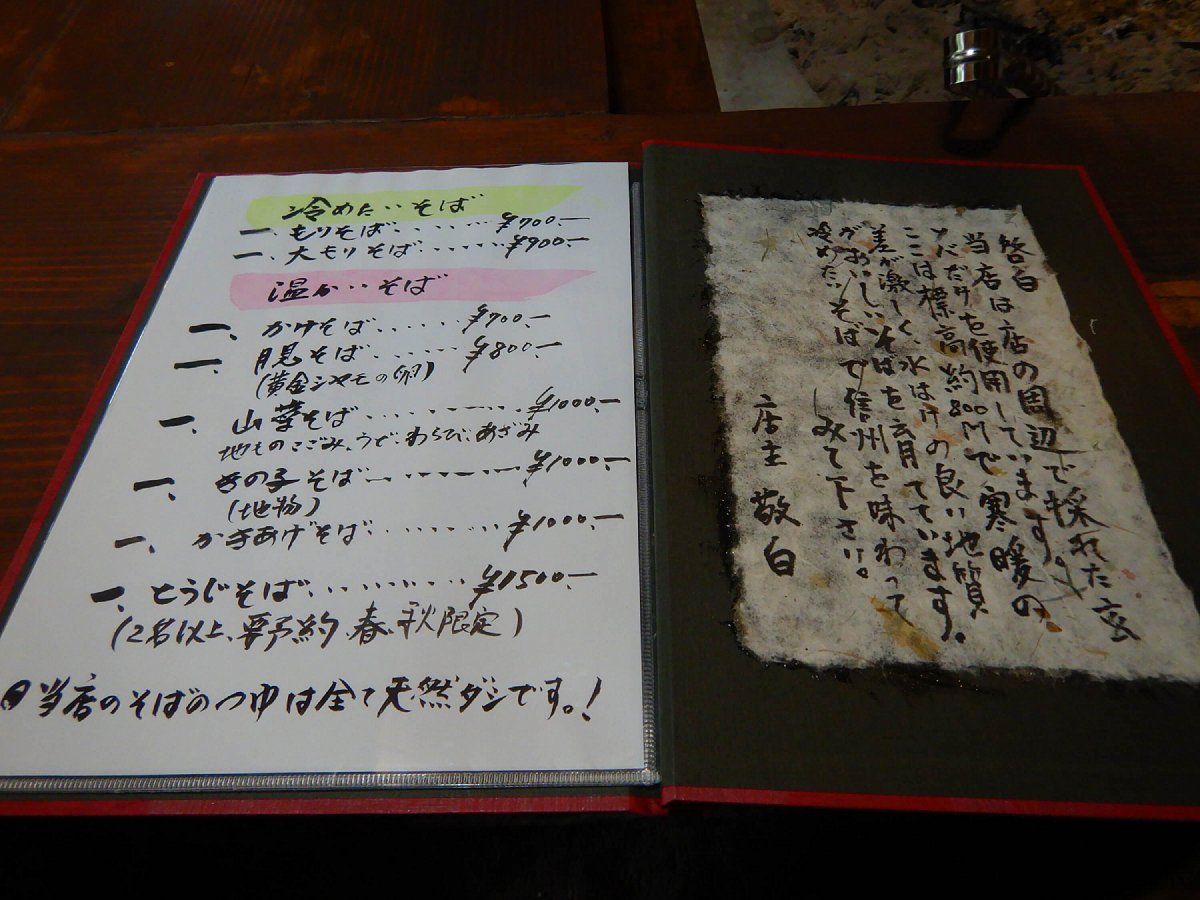 冷めたいそば
一、もりそば......¥700.—
一、大もりそば......¥900.—
温かいそば
一、かけそば......¥700.—
一、月見そば......¥800.—
(黄金シャモの卵)
一、山菜そば..........¥1000.—
地ものこごみ、うど、わらび、あざみ
一、きの子そば..........¥1000.—
(地物)
一、かきあげそば..........¥1000.—
一、とうじそば..........¥1500.—
(2名以上、要予約、春、秋限定)
◎当店のそばのつゆは全て天然ダシです。!
啓白
当店は店の周辺で採れた玄
ソバだけを使用しています。
ここは標高約800Mで寒暖の
差が激しく、水はけの良い地質
がおいしいそばを育てています。
冷めたいそばで信州を味わって
みて下さい。
店主 敬白